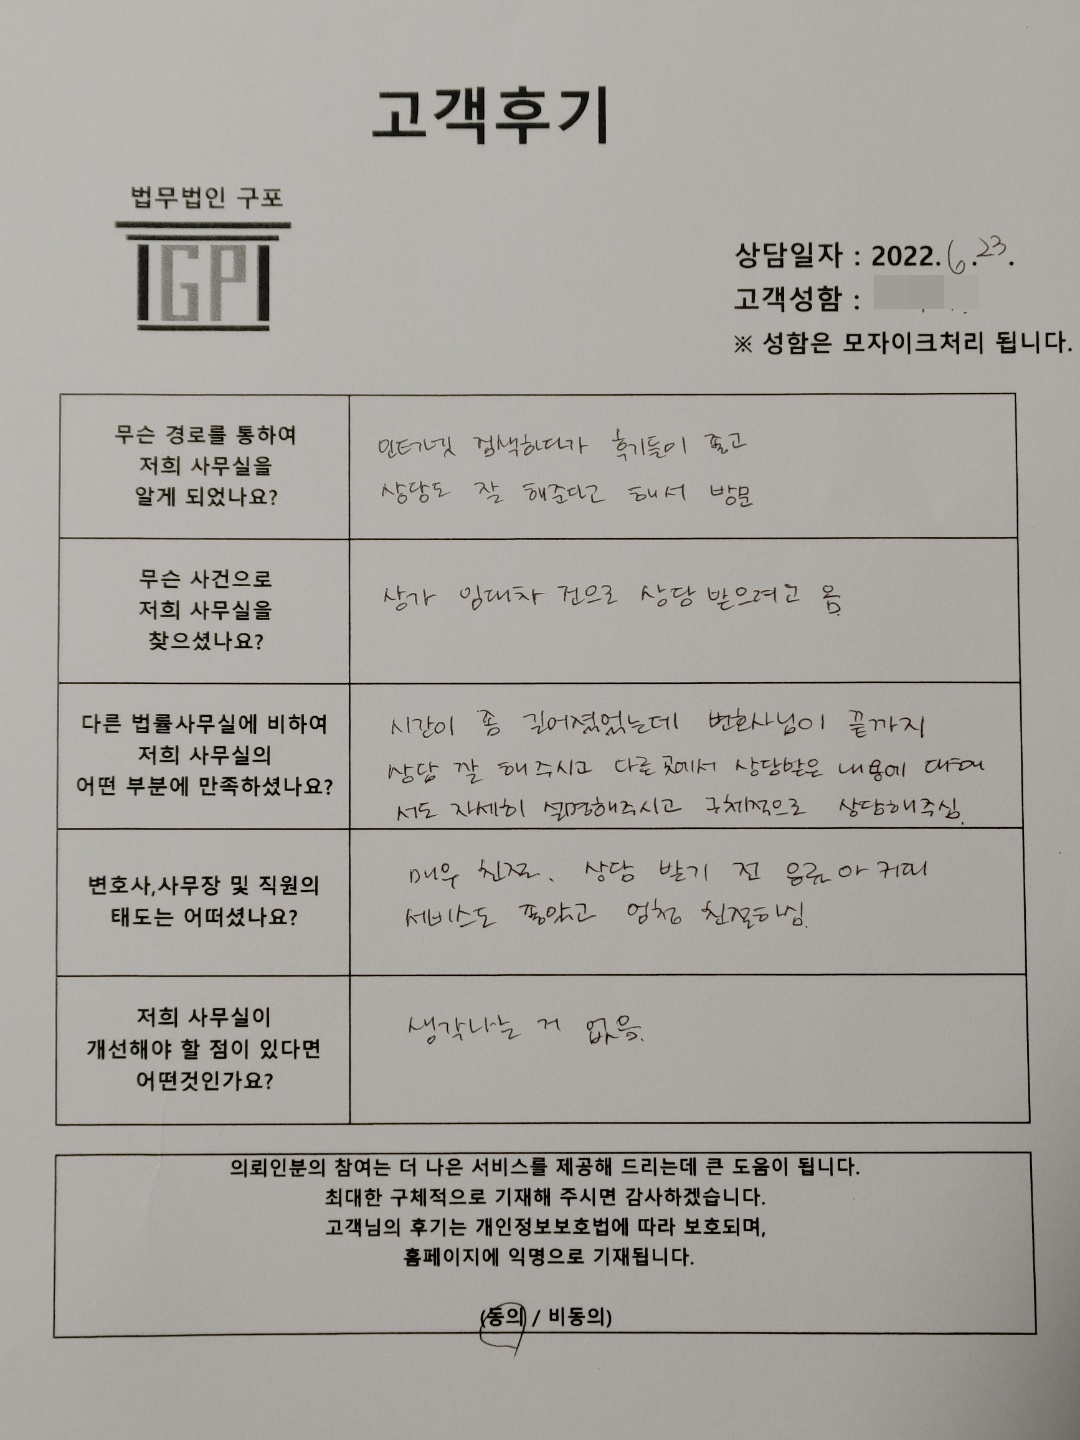 고객후기
법무법인 구포
GP
상담일자 : 2022.6.23.
고객성함 :
※ 성함은 모자이크처리 됩니다.
무슨 경로를 통하여
저희 사무실을
알게 되었나요?
인터넷 검색하다가 후기들이 좋고
상담도 잘 해준다고 해서 방문
무슨 사건으로
저희 사무실을
찾으셨나요?
상가 임대차 건으로 상담 받으려고 옴.
다른 법률사무실에 비하여
저희 사무실의
어떤 부분에 만족하셨나요?
시간이 좀 길어졌었는데 변호사님이 끝까지
상담 잘 해주시고 다른곳에서 상담받은 내용에 대해
서도 자세히 설명해주시고 구체적으로 상담해주심.
변호사,사무장 및 직원의
태도는 어떠셨나요?
매우 친절. 상담 받기 전 음료나 커피
서비스도 좋았고 엄청 친절하심.
저희 사무실이
개선해야 할 점이 있다면
어떤것인가요?
생각나는 거 없음.
의뢰인분의 참여는 더 나은 서비스를 제공해 드리는데 큰 도움이 됩니다.
최대한 구체적으로 기재해 주시면 감사하겠습니다.
고객님의 후기는 개인정보보호법에 따라 보호되며,
홈페이지에 익명으로 기재됩니다.
(동의 / 비동의)